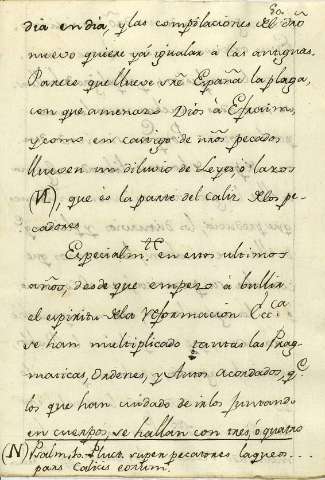 30.
dia en dia, y las compilaciones del dro
nuevo quiere yá igualar á las antiguas.
Parece que llueve sre España la plaga,
con que amenazó Dios à Efraim,
y como en castigo de nros pecados
llueven un diluvio de Leyes, ò lazos
(N), que és la parte del Caliz delos pe-
cadores
Especialmte. en estos ultimos
años, desde que empezo à bullir
el espiritu dela reformacion Ecca
se han multiplicado tantas las Prag-
maticas, Ordenes, y Autos acordados, qe.
los que han cuidado de irlos juntando
en cuerpos, se hallan con tres, ó quatro
(N) Psalm. 10. Pluet super pecatores laqueos....
pars Calicis eorum.